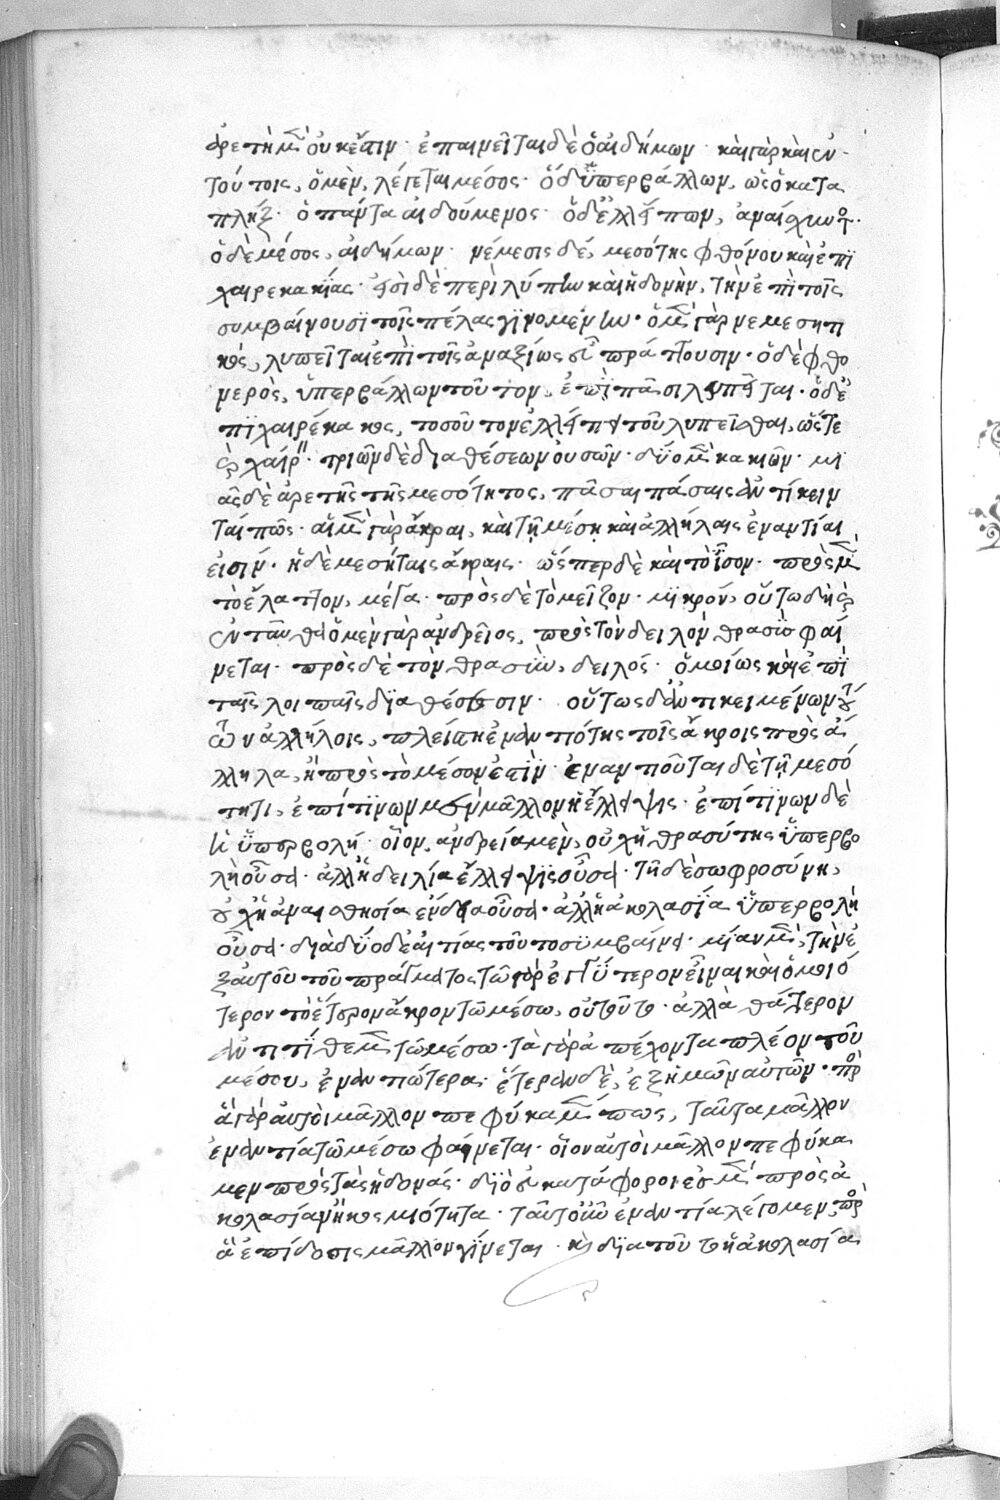 ἀρετὴ μὲν οὐκ ἔστιν· ἐπαινεῖται δὲ ὁ αἰδήμων· καὶ γὰρ καὶ ἐν
τούτοις, ὁ μὲν, λέγεται μέσος· ὁ δ' ὑπερβάλλων, ὡς ὁ κατα
πλήξ· ὁ πάντα αἰδούμενος· ὁ δ' ἐλλείπων, ἀναίσχυντος·
ὁ δὲ μέσος, αἰδήμων· νέμεσις δέ, μεσότης φθόνου καὶ ἐπι
χαιρεκακίας· εἰσὶ δὲ περὶ λύπην καὶ ἡδονὴν, τὴν ἐπὶ τοῖς
συμβαίνουσι τοῖς πέλας γινομένην· ὁ μὲν γὰρ νεμεσητι
κὸς, λυπεῖται ἐπὶ τοῖς ἀναξίως εὖ πράττουσιν· ὁ δὲ φθο
νερὸς, ὑπερβάλλων τοῦτον, ἐπὶ πᾶσι λυπεῖται· ὁ δ' ἐ
πιχαιρέκακος, τοσοῦτον ἐλλείπει τοῦ λυπεῖσθαι, ὥστε
καὶ χαίρειν· τριῶν δὲ διαθέσεων οὐσῶν· δύο μὲν κακιῶν· μι
ᾶς δὲ ἀρετῆς τῆς μεσότητος, πᾶσαι πάσαις ἀντίκειν
ταί πως· αἱ μὲν γὰρ ἄκραι, καὶ τῇ μέσῃ καὶ ἀλλήλαις ἐναντίαι
εἰσίν· ἡ δὲ μέση ταῖς ἄκραις· ὥσπερ δὲ καὶ τὸ ἴσον· πρὸς μὲν
τὸ ἔλαττον, μέγα· πρὸς δὲ τὸ μεῖζον· μικρόν, οὕτω δὴ καὶ
ἐνταῦθα ὁ μὲν γὰρ ἀνδρεῖος, πρὸς τὸν δειλὸν θρασὺς φαί
νεται· πρὸς δὲ τὸν θρασὺν, δειλός· ὁμοίως καὶ ἐπὶ
ταῖς λοιπαῖς διαθέσεσιν· οὕτως δ' ἀντικειμένων τού
των ἀλλήλοις, πλείστη ἐναντιότης τοῖς ἄκροις πρὸς ἄ
λληλα, ἢ πρὸς τὸ μέσον ἐστὶν· ἐναντιοῦται δὲ τῇ μεσό
τητι, ἐπί τινων μὲν μᾶλλον ἡ ἔλλειψις· ἐπί τινων δὲ
ἡ ὑπερβολή· οἷον, ἀνδρείᾳ μὲν, οὐχ ἡ θρασύτης ὑπερβο
λὴ οὖσα· ἀλλ' ἡ δειλία ἔλλειψις οὖσα· τῇ δὲ σωφροσύνῃ,
οὐχ ἡ ἀναισθησία ἔνδεια οὖσα· ἀλλ' ἡ ἀκολασία ὑπερβολὴ
οὖσα· διὰ δύο δὲ αἰτίας τοῦτο συμβαίνει· μίαν μὲν, τὴν ἐ
ξ αὐτοῦ τοῦ πράγματος τῷ γὰρ ἐγγύτερον εἶναι καὶ ὁμοιό
τερον τὸ ἕτερον ἄκρον τῷ μέσῳ, οὐ τοῦτο· ἀλλὰ θάτερον
ἀντιτίθεμεν τῷ μέσῳ· τὰ γὰρ ἀπέχοντα πλέον τοῦ
μέσου, ἐναντιώτερα· ἑτέραν δὲ, ἐξ ἡμῶν αὐτῶν· πρὸς
ἃ γὰρ αὐτοὶ μᾶλλον πεφύκαμέν πως, ταῦτα μᾶλλον
ἐναντία τῷ μέσῳ φαίνεται· οἷον αὐτοὶ μᾶλλον πεφύκα
μεν πρὸς τὰς ἡδονάς· διὸ εὐκατάφοροί ἐσμεν πρὸς ἀ
κολασίαν ἢ κοσμιότητα· ταῦτ' οὖν ἐναντία λέγομεν, πρὸς
ἃ ἐπίδοσις μᾶλλον γίνεται· καὶ διὰ τοῦτο ἡ ἀκολασία